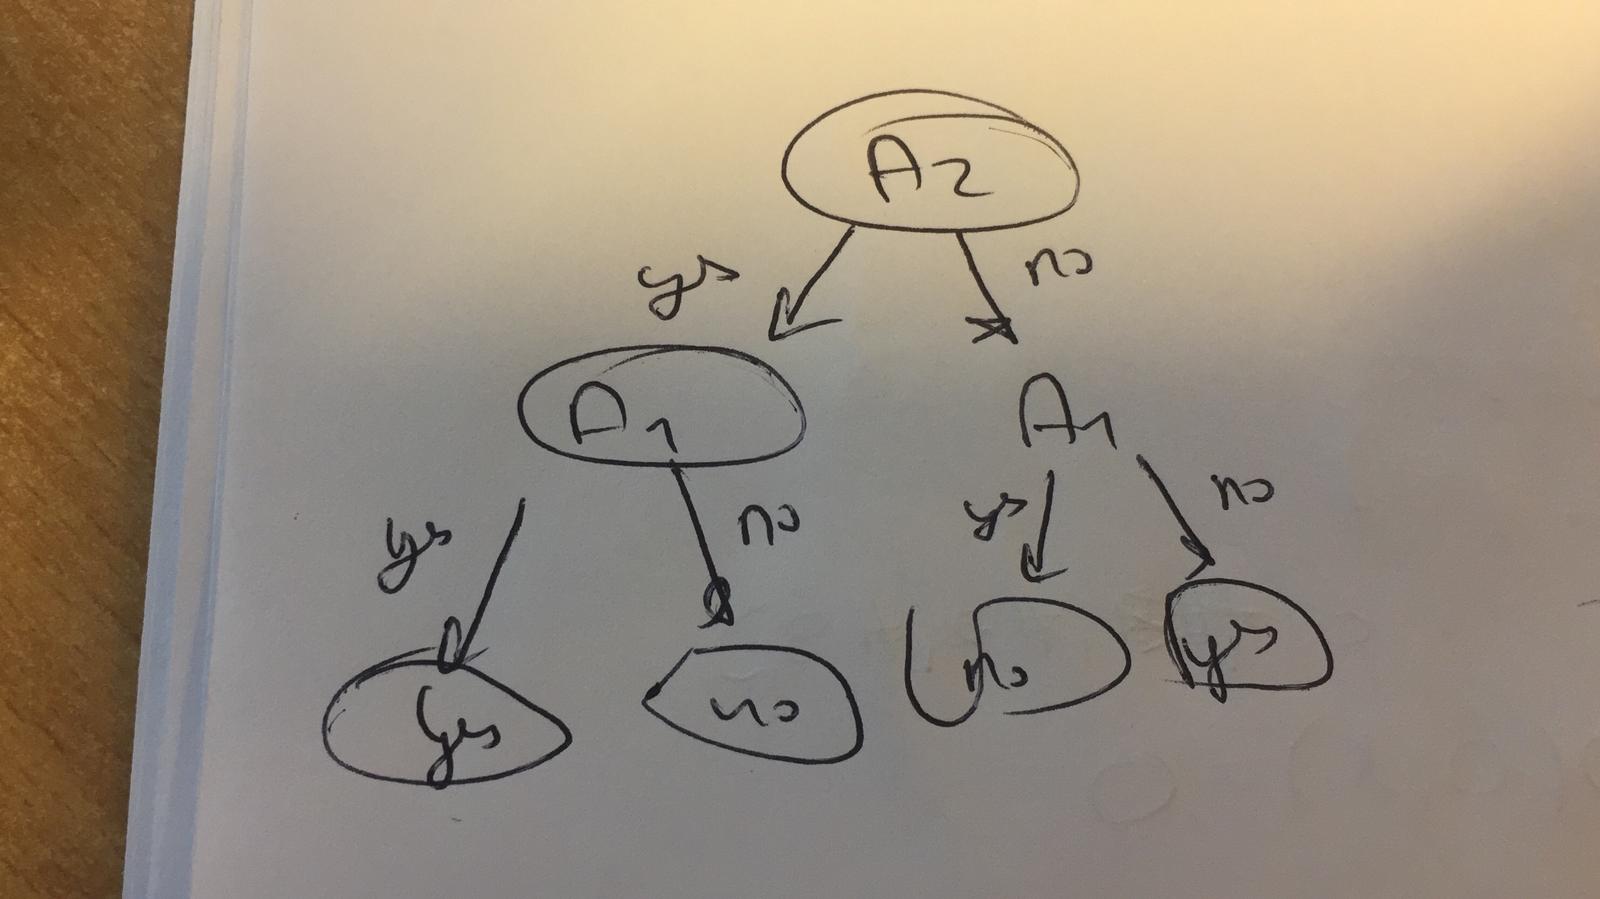 A2
yes no
A1 A1
yes no yes no
yes no no yes